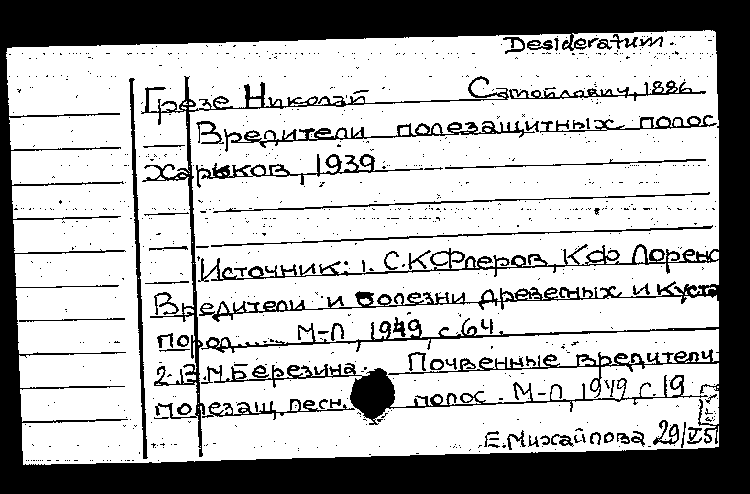 Desideratum.
Грезе Николай Самойлович, 1886
Вредители полезащитных полос
Харьков, 1939.
Источник: 1. С.К Флеров, К.Ф. Лоренс
Вредители и болезни древесных и куста
пород..... М-Л, 1949, с. 64.
2. В.М. Березина. Почвенные вредители
полезащ. лесн. полос. М-Л, 1949, с. 19
Е. Михайлова 29/V 51